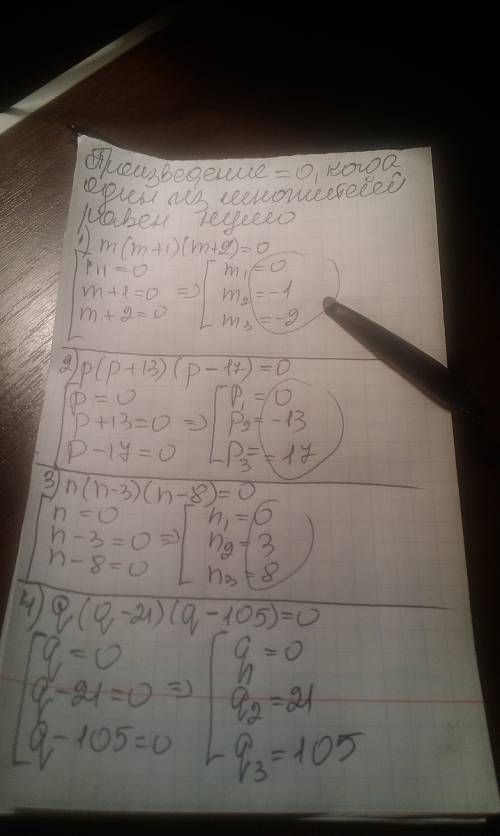 Произведение = 0, когда
один из множителей
равен нулю
1) m(m+1)(m+2)=0
[m=0 [m₁=0
m+1=0 => m₂=-1
m+2=0 m₃=-2
2) p(p+13)(p-17)=0
[p=0 [p₁=0
p+13=0 => p₂=-13
p-17=0 p₃=17
3) n(n-3)(n-8)=0
[n=0 [n₁=0
n-3=0 => n₂=3
n-8=0 n₃=8
4) q(q-21)(q-105)=0
[q=0 [q₁=0
q-21=0 => q₂=21
q-105=0 q₃=105